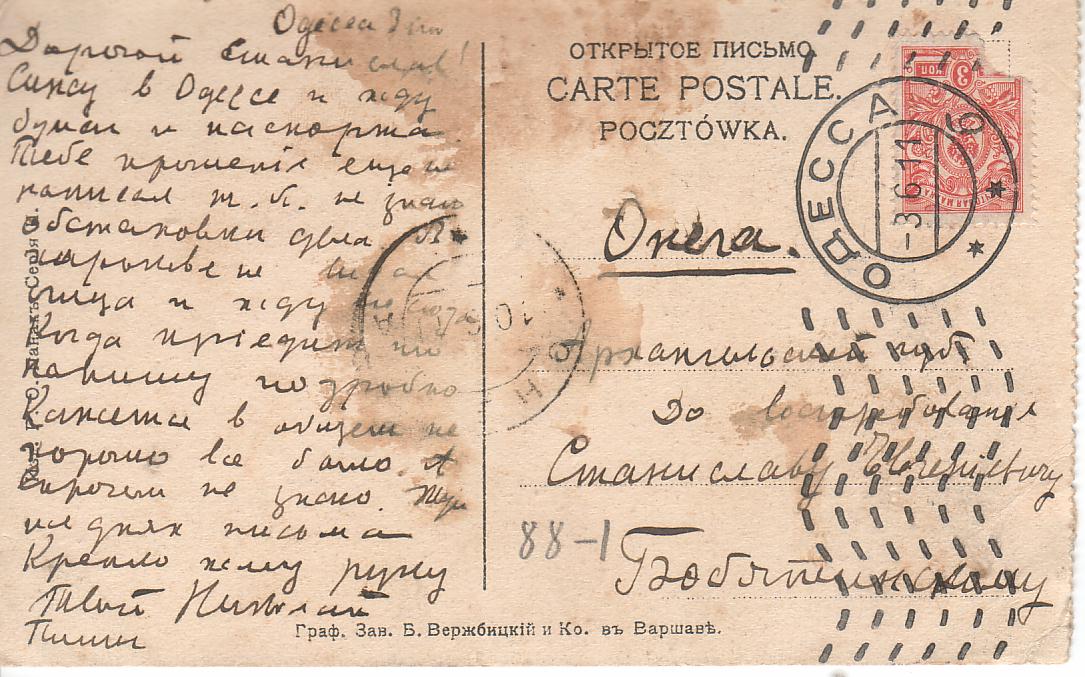 Одесса
Дорогой Станислав!
Сижу в Одессе и жду
бумаг и паспорта
Тебе прошенія еще не
написал т. к. не знаю
обстановки дела. В
Харькове не
и жду
Когда пріедит
напишу подробно
Кажется в общем не
хорошо все было. А
впрочем не знаю. Жди
на днях письма
Крепко жму руку
Твой Николай
Пиши
ОТКРЫТОЕ ПИСЬМО
CARTE POSTALE.
POCZTÓWKA.
3 КОП.
ОДЕССА
-3.6.11
6
Онега.
Архангельской губ
До востребования
Станиславу
88-1
Граф. Зав. Б. Вержбицкій и Ко. въ Варшавѣ.